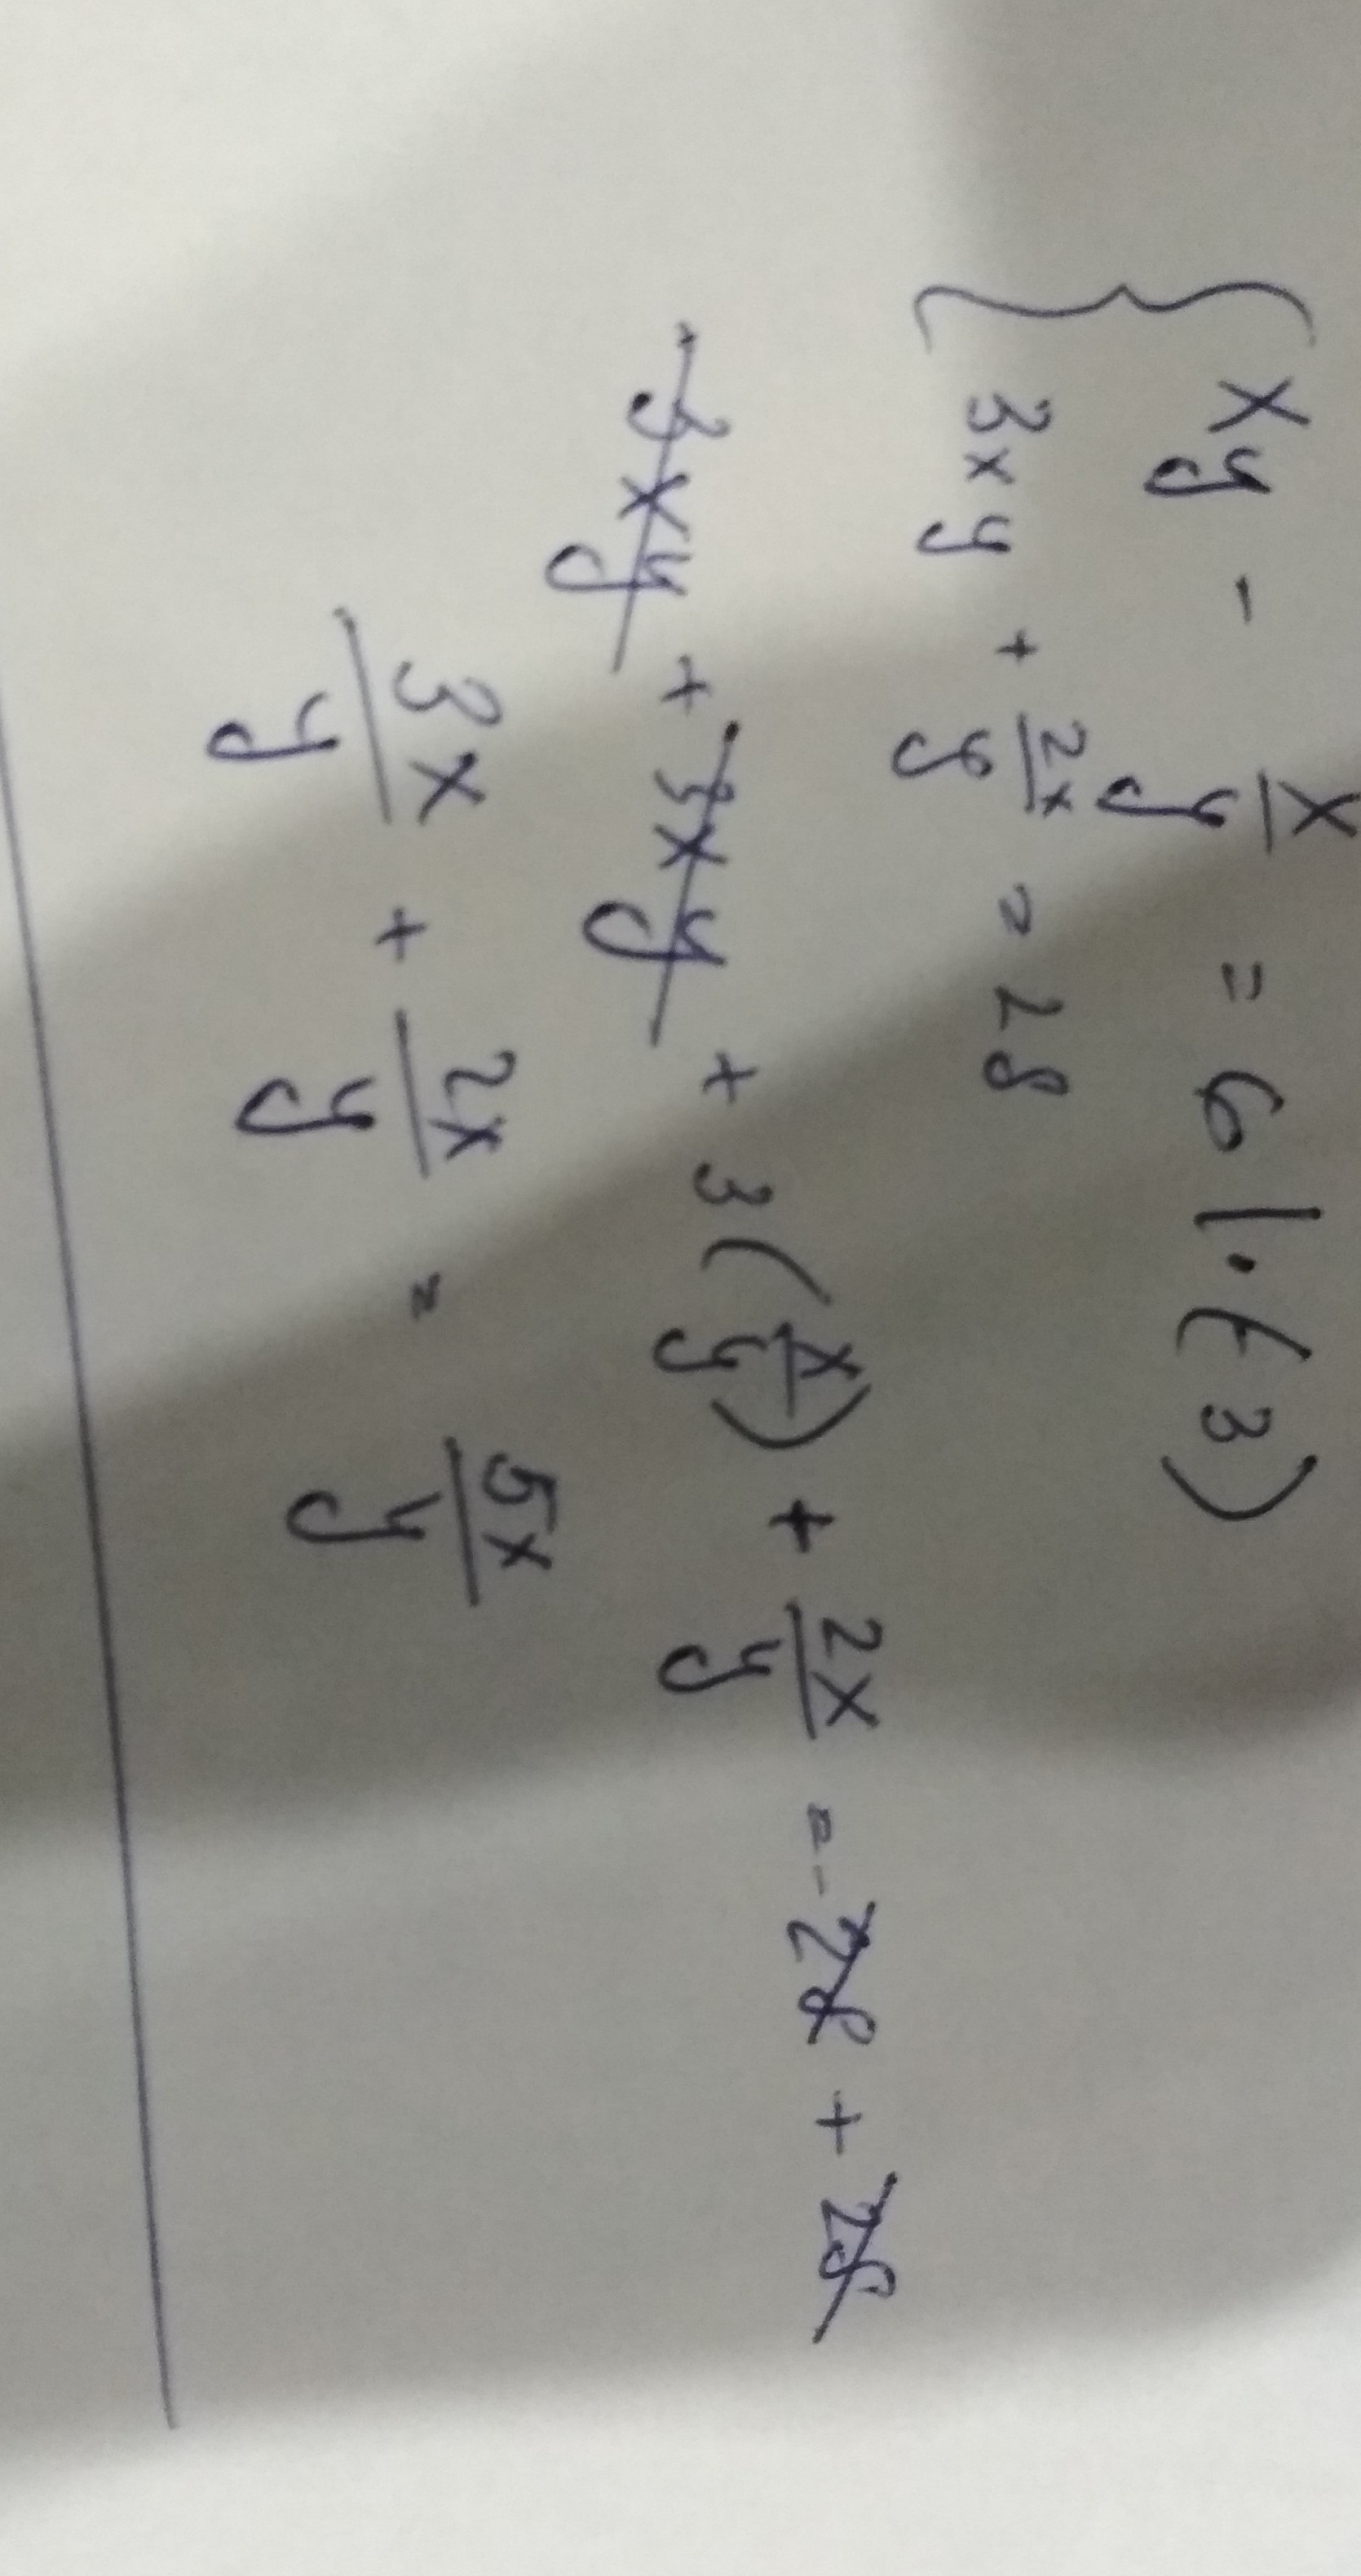 { xy - x/y = 6 |·(-3)
3xy + 2x/y = 28
-3xy + 3xy + 3(x/y) + 2x/y = -28 + 28
3x/y + 2x/y = 5x/y